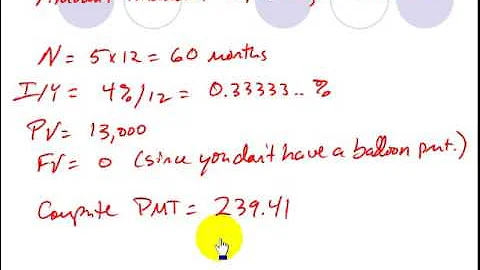 N = 5x12 = 60 months
I/Y = 4%/12 = 0.33333..%
PV = 13,000
FV = 0 (since you don't have a balloon pmt.)
Compute PMT = 239.41